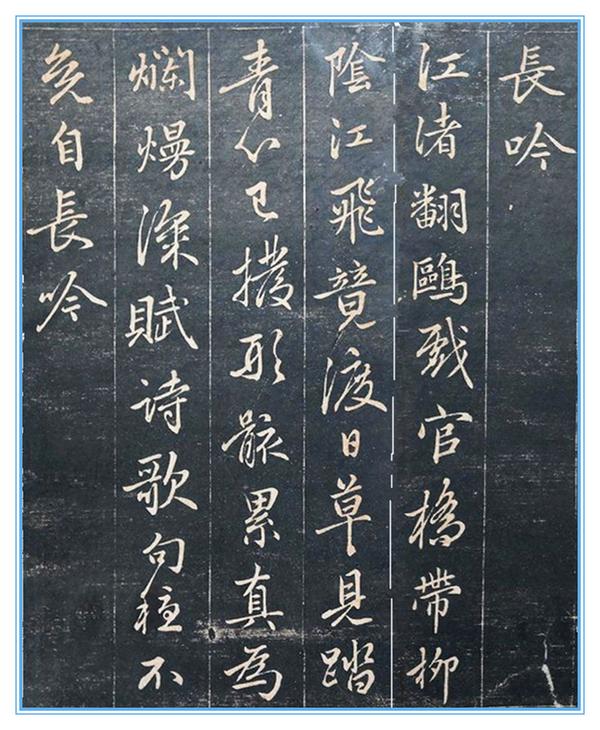 長吟
江渚翻鷗戲官橋帶柳
陰江飛竟渡日草見踏
青心已撥形骸累真為
爛熳深賦詩歌句穩不
免自長吟